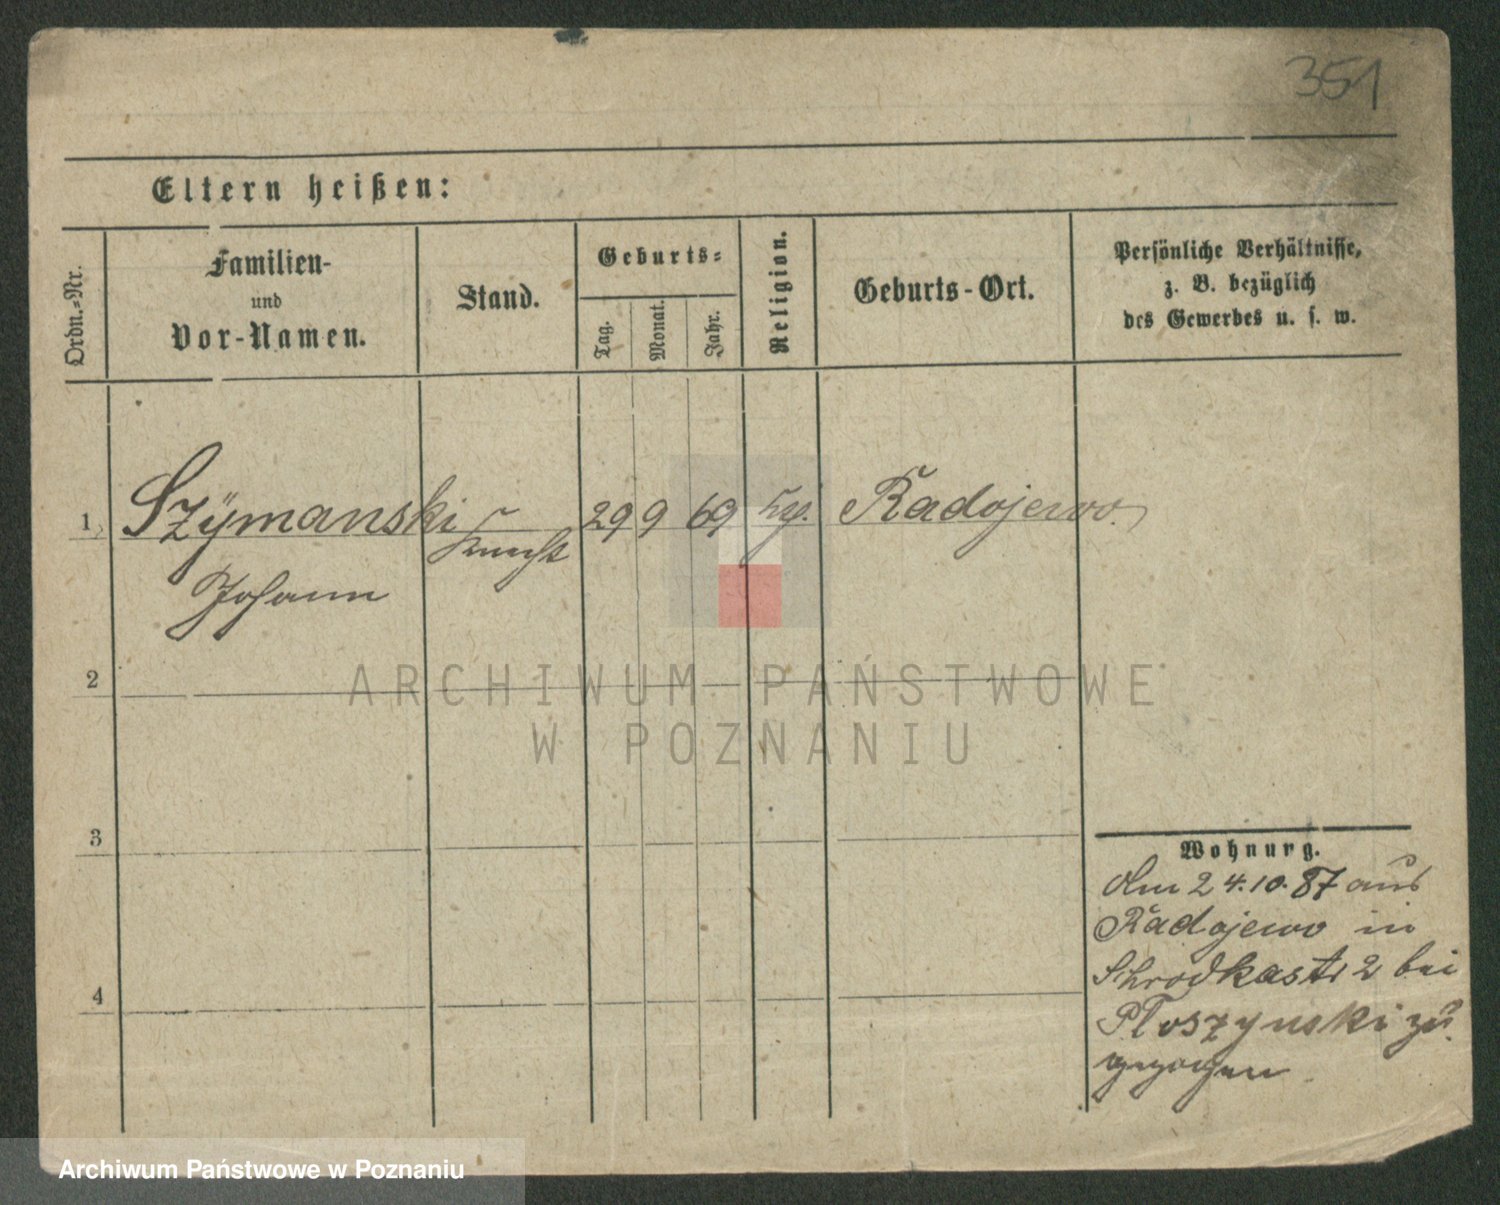 351
Eltern heißen:
Ordn.-Nr.
Familien-
und
Vor-Namen.
Stand.
Geburts-
Tag.
Monat.
Jahr.
Religion.
Geburts-Ort.
Persönliche Verhältnisse,
z. B. bezüglich
des Gewerbes u. s. w.
1 Szymanski Knecht 29 9 69 Radojewo.
Johann
2
ARCHIWUM PAŃSTWOWE
W POZNANIU
3
4
Wohnung.
Am 24.10.87 aus
Radojewo in
Schrodkastr 2 bei
Ploszynski zu
gezogen
Archiwum Państwowe w Poznaniu